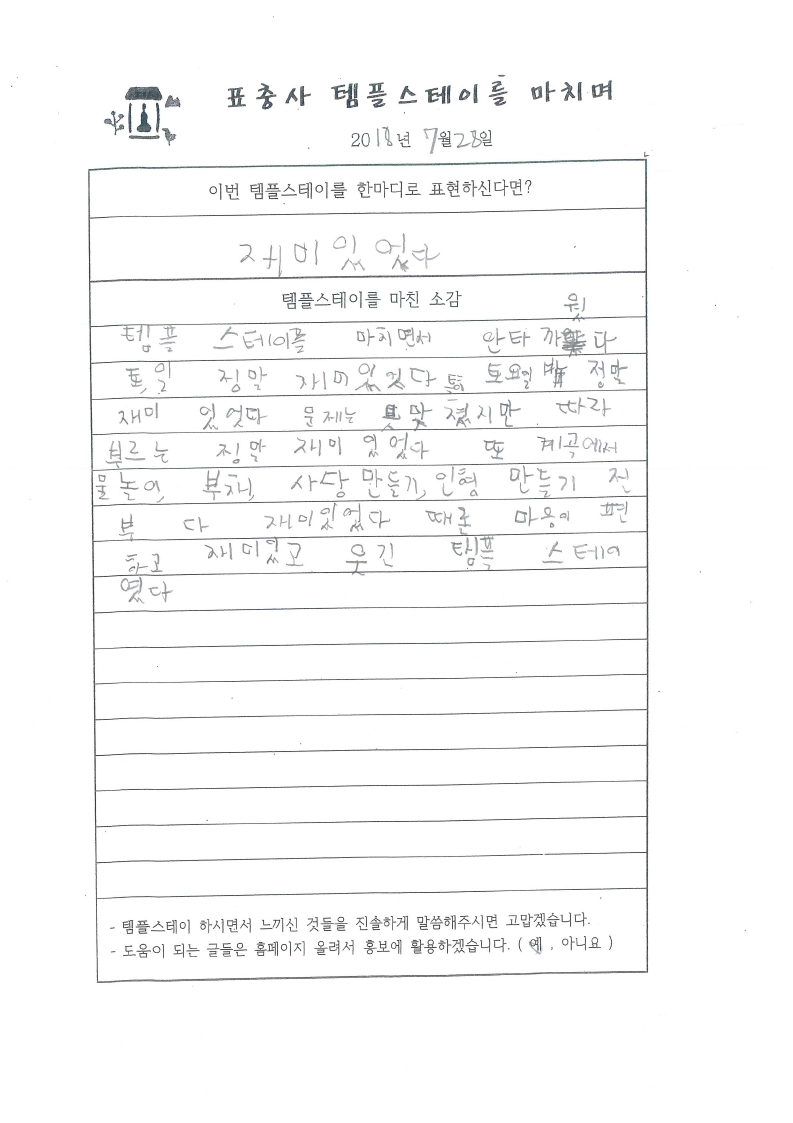 표충사 템플스테이를 마치며
2018년 7월28일
이번 템플스테이를 한마디로 표현하신다면?
재미있었다
템플스테이를 마친 소감
템플 스테이를 마치면서 안타까웠다
정말 재미있었다 토요일 정말
재미 있었다 문제는 못 맞췄지만 따라
부르는 정말 재미 있었다 또 계곡에서
물놀이, 부채, 사탕 만들기, 인형 만들기 전
부 다 재미있었다 때론 마음이 편
하고 재미있고 웃긴 템플 스테이
였다
- 템플스테이 하시면서 느끼신 것들을 진솔하게 말씀해주시면 고맙겠습니다.
- 도움이 되는 글들은 홈페이지 올려서 홍보에 활용하겠습니다. ( 예 , 아니요 )